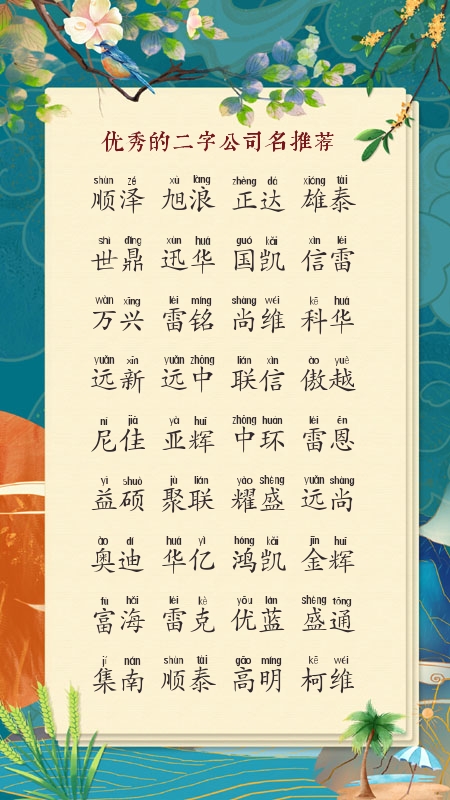 优秀的二字公司名推荐
shùn zé xù làng zhèng dá xióng tài
顺泽 旭浪 正达 雄泰
shì dǐng xùn huá guó kǎi xìn léi
世鼎 迅华 国凯 信雷
wàn xīng léi míng shàng wéi kē huá
万兴 雷铭 尚维 科华
yuǎn xīn yuǎn zhōng lián xìn ào yuè
远新 远中 联信 傲越
ní jiā yà huī zhōng huán léi ēn
尼佳 亚辉 中环 雷恩
yì shuò jù lián yào shèng yuǎn shàng
益硕 聚联 耀盛 远尚
ào dí huá yì hóng kǎi jīn huī
奥迪 华亿 鸿凯 金辉
fù hǎi léi kè yōu lán shèng tōng
富海 雷克 优蓝 盛通
jí nán shùn tài gāo míng kē wéi
集南 顺泰 高明 柯维